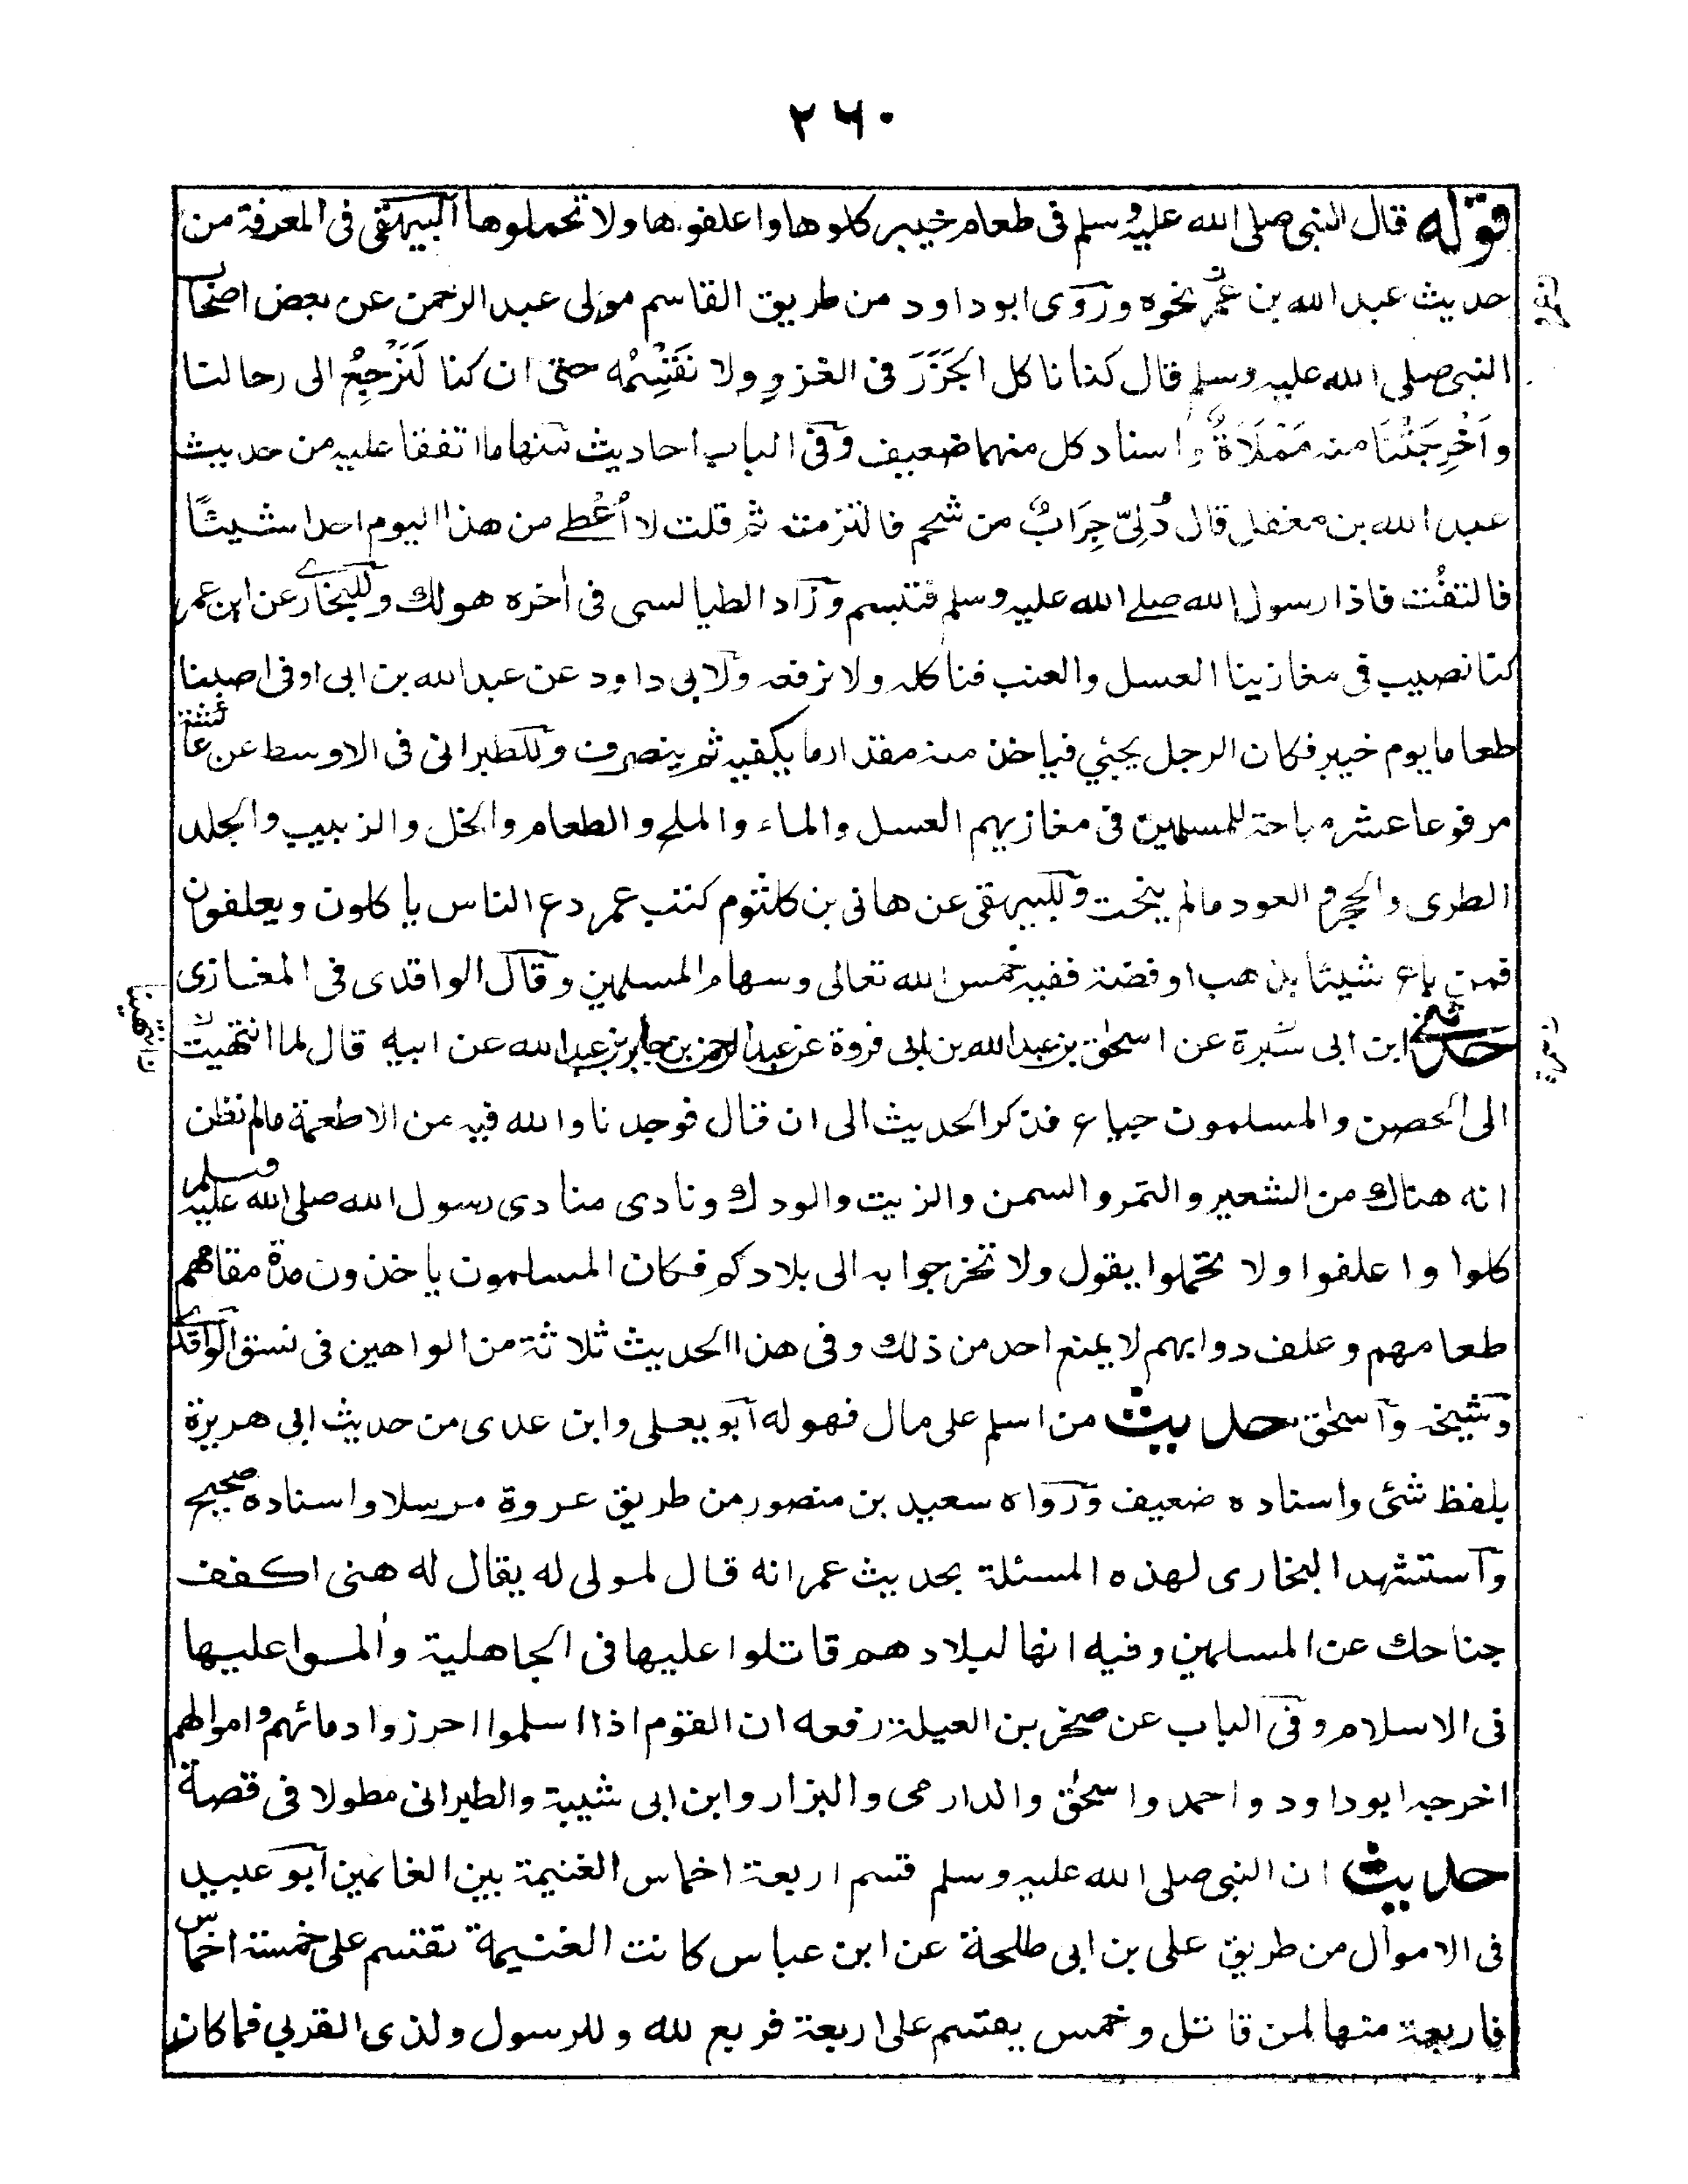 ٢٦٠
قوله قال النبى صلى الله عليه وسلم فى طعام خيبر كلوها واعلفوها ولا تحملوها البيهقى فى المعرفة من
حديث عبد الله بن عمر نحوه وروى ابو داود من طريق القاسم مولى عبد الرحمن عن بعض اصحاب
النبى صلى الله عليه وسلم قال كنا ناكل الجَزَرَ فى الغزو ولا نَقْتَسِمُه حتى ان كنا لَنَرْجِعُ الى رحالنا
واَخْرِجَتُنَا منه مَمْلَاَةٌ واسناد كل منهما ضعيف وفى الباب احاديث منها ما اتفقا عليه من حديث
عبد الله بن مغفل قال دُلِّىَ جِرَابٌ من شحم فالتزمته ثم قلت لا اُعْطى من هذا اليوم احدا شيئًا
فالتفتُ فاذا رسول الله صلى الله عليه وسلم فتبسم وزاد الطيالسى فى اٰخره هو لك وللبخارى عن ابن عمر
كنا نصيب فى مغازينا العسل والعنب فناكله ولا نرفعه ولابى داود عن عبد الله بن ابى اوفى اصبنا
طعاما يوم خيبر فكان الرجل يجئي فياخذ منه مقدار ما يكفيه ثم ينصرف وللطبرانى فى الاوسط عن عائشة
مرفوعا عشرة مباحة للمسلمين فى مغازيهم العسل والماء والملح والطعام والخل والزبيب والجلد
الطرى والحجر والعود مالم ينحت وللبيهقى عن هانى بن كلثوم كتب عمر دع الناس ياكلون ويعلفون
فمن باع شيئا بذهب او فضة ففيه خمس الله تعالى وسهام المسلمين وقال الواقدى فى المغازى
حدثنى ابن ابى سَبرة عن اسحٰق بن عبد الله بن ابى فروة عن عبد الرحمن بن جابر بن عبد الله عن ابيه قال لما انتهيت
الى الحصن والمسلمون جياع فذكر الحديث الى ان قال فوجدنا والله فيه من الاطعمة مالم نظن
انه هناك من الشعير والتمر والسمن والزيت والودك ونادى منادى رسول الله صلى الله عليه وسلم
كلوا واعلفوا ولا تحملوا يقول ولا تخرجوا به الى بلادكم فكان المسلمون ياخذون مدة مقامهم
طعامهم وعلف دوابهم لا يمنع احد من ذلك وفى هذا الحديث ثلاثة من الواهين فى نسق الواقدى
وشيخه واسحٰق حديث من اسلم على مال فهو له ابو يعلى وابن عدى من حديث ابى هريرة
بلفظ شئ واسناده ضعيف ورواه سعيد بن منصور من طريق عروة مرسلا واسناده صحيح
واستشهد البخارى لهذه المسئلة بحديث عمر انه قال لمولى له يقال له هنى اكفف
جناحك عن المسلمين وفيه انها لبلادهم قاتلوا عليها فى الجاهلية والمسوا عليها
فى الاسلام وفى الباب عن صخر بن العيلة رفعه ان القوم اذا اسلموا احرزوا دمائهم واموالهم
اخرجه ابو داود واحمد واسحٰق والدارمى والبزار وابن ابى شيبة والطبرانى مطولا فى قصة
حديث ان النبى صلى الله عليه وسلم قسم اربعة اخماس الغنيمة بين الغانمين ابو عبيد
فى الاموال من طريق على بن ابى طلحة عن ابن عباس كانت الغنيمة تقتسم على خمسة اخماس
فاربعة منها لمن قاتل وخمس يقتسم على اربعة فربع لله وللرسول ولذى القربى فما كان